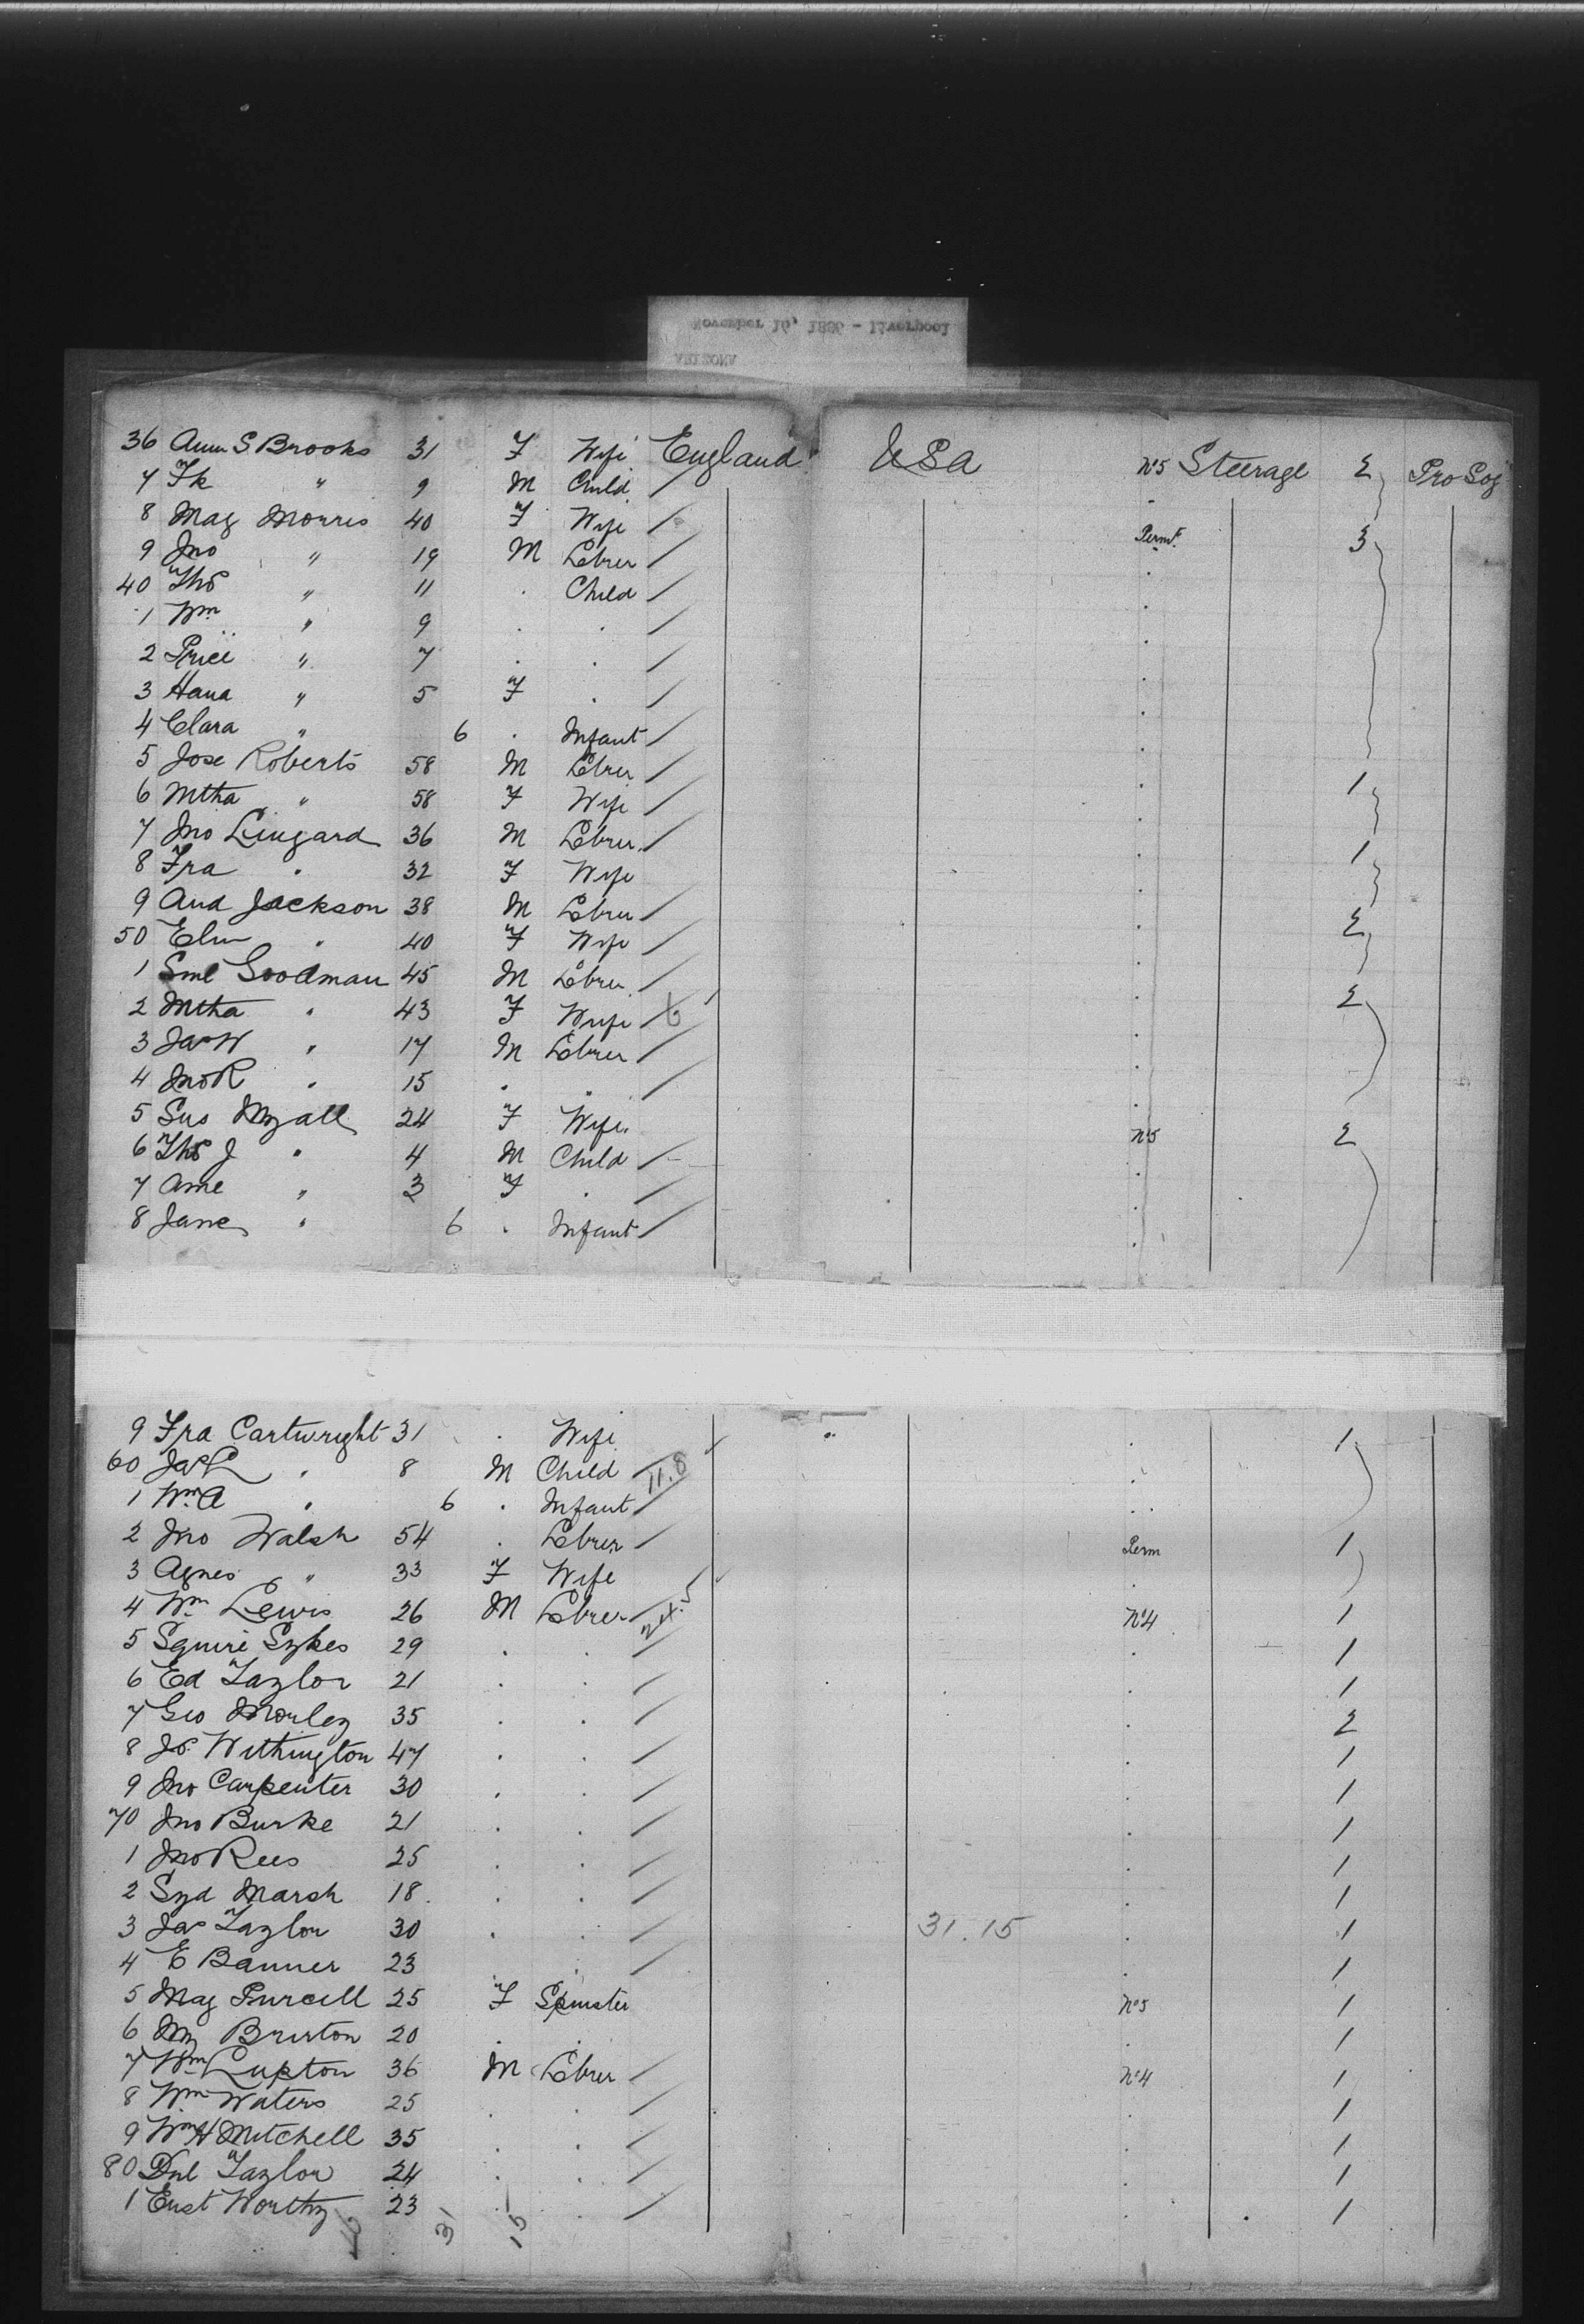 November 16, 1886 - Liverpool
ARIZONA
36 Ann S Brooks 31 F Wife England USA No 5 Steerage 2 Pro Soj
7 Fk " 9 M Child /
8 Mag Morris 40 F Wife / Permt 3
9 Jno " 19 M Lebrer /
40 Thos " 11 . Child /
1 Wm " 9 . . /
2 Price " 7 . . /
3 Hana " 5 F . /
4 Clara " 6 . Infant /
5 Jose Roberts 58 M Lebrer /
6 Mtha " 58 F Wife / 1
7 Jno Lingard 36 M Lebrer /
8 Fra . 32 F Wife 1
9 And Jackson 38 M Lebrer /
50 Elin . 40 F Wife / 2
1 Sml Goodman 45 M Lebrer /
2 Mtha . 43 F Wife / 6 2
3 Jas W . 17 M Lebrer /
4 Jno R . 15 . . /
5 Sus Myall 24 F Wife
6 Thos J . 4 M Child / No 5 2
7 Ame " 3 F . /
8 Jane . 6 . Infant /
9 Fra Cartwright 31 . Wife 1
60 Jas L . 8 M Child / 11.8
1 Wm A . 6 . Infant /
2 Jno Walsh 54 . Lebrer / Perm 1
3 Agnes " 33 F Wife
4 Wm Lewis 26 M Lebrer / No 4 1
5 Squire Sykes 29 . . / 1
6 Ed Taylor 21 . . / 1
7 Geo Morley 35 . . / 2
8 Js. Withington 47 . . / 1
9 Jno Carpenter 30 . . / 1
70 Jno Burke 21 . . / 1
1 Jno Rees 25 . . / 1
2 Syd Marsh 18 . . / 1
3 Jas Taylor 30 . . / 31.15 1
4 E Banner 23 . / 1
5 Mag Purcell 25 F Spinster No 5 1
6 My Brierton 20 . . 1
7 Wm Lupton 36 M Lebrer / No 4 1
8 Wm Waters 25 . . / 1
9 Wm H Mitchell 35 . . / 1
80 Dnl Taylor 24 . . / 1
1 Enst Worthy 23 . . / 1
31 15